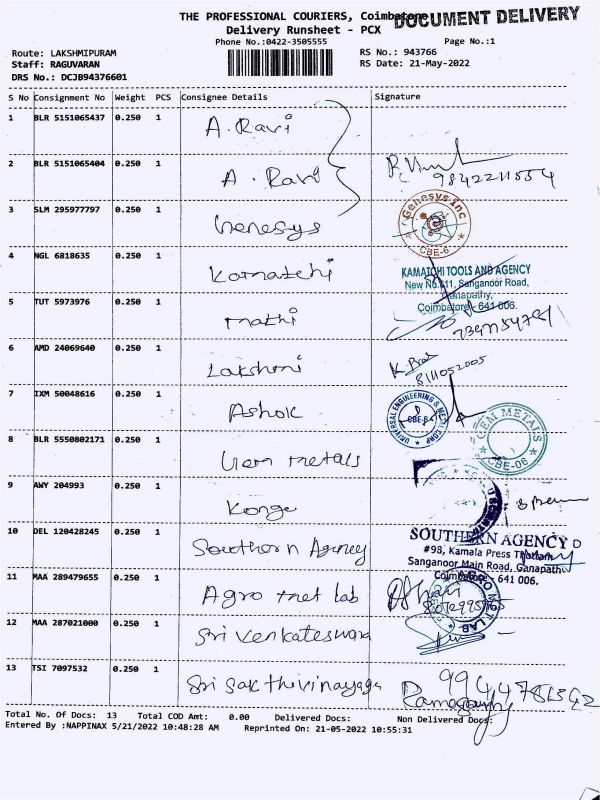 THE PROFESSIONAL COURIERS, Coimbatore
DOCUMENT DELIVERY
Delivery Runsheet - PCX
Phone No.:0422-3505555
Page No.:1
Route: LAKSHMIPURAM
RS No.: 943766
Staff: RAGUVARAN
RS Date: 21-May-2022
DRS No.: DCJB94376601
S No Consignment No Weight PCS Consignee Details Signature
1 BLR 5151065437 0.250 1 A. Ravi
2 BLR 5151065404 0.250 1 A. Ravi
9842211554
3 SLM 295977797 0.250 1 Genesys
Genesys Inc
CBE-6
4 NGL 6818635 0.250 1 Kamatchi
KAMATCHI TOOLS AND AGENCY
New No.611, Sanganoor Road,
Ganapathy,
Coimbatore - 641 006.
5 TUT 5973976 0.250 1 mathi
6 AMD 24069640 0.250 1 Lakshmi
8111052005
7 IXM 50048616 0.250 1 Ashok
UNIVERSAL ENGINEERING & METAL CORP
CBE-6
8 BLR 5550802171 0.250 1 Gem metals
GEM METALS
CBE-06
9 AWY 204993 0.250 1 Konge
10 DEL 120428245 0.250 1 Southern Agency
SOUTHERN AGENCY
#98, Kamala Press Thottam
Sanganoor Main Road, Ganapathy
Coimbatore - 641 006.
11 MAA 289479655 0.250 1 Agro met lab
AGRO MET LAB
12 MAA 287021000 0.250 1 Sri venkateswara
13 TSI 7097532 0.250 1 Sri Sakthivinayaga
Ramasamy
Total No. Of Docs: 13 Total COD Amt: 0.00 Delivered Docs: Non Delivered Docs:
Entered By :NAPPINAX 5/21/2022 10:48:28 AM Reprinted On: 21-05-2022 10:55:31